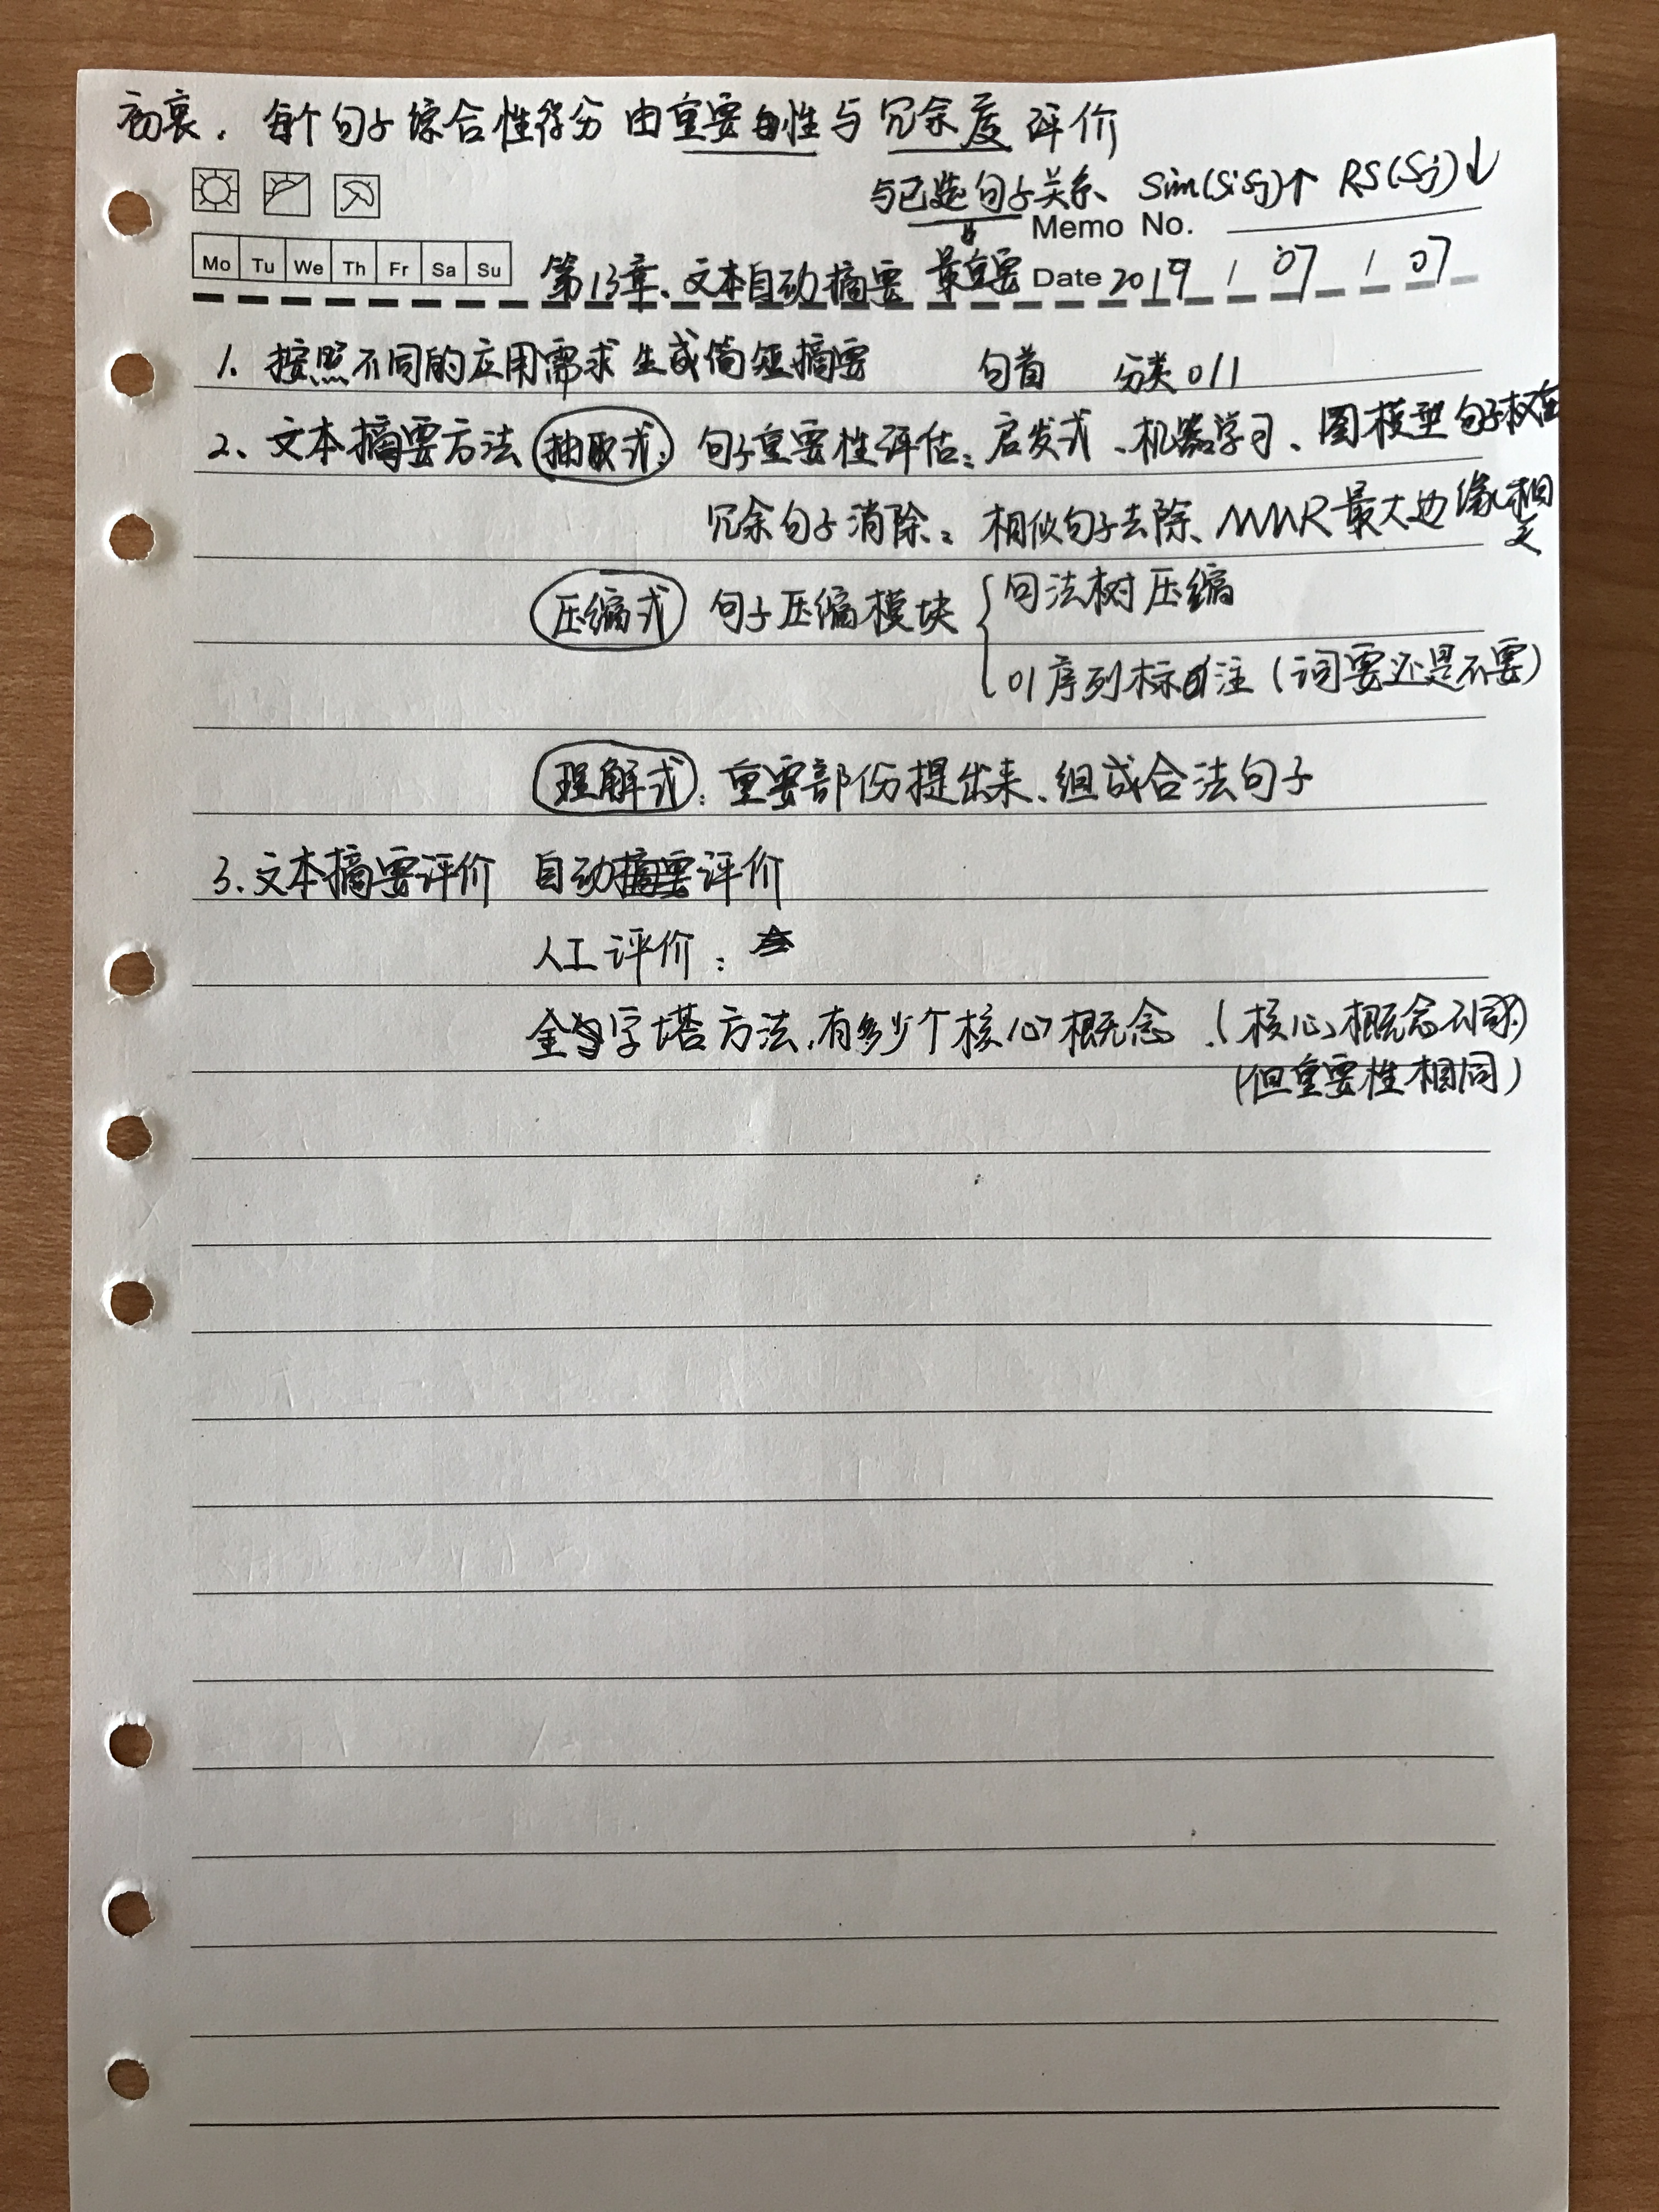 初衷. 每个句子综合性得分 由重要性与冗余度 评价
与已选句子关系、 Sim(Si Sj)↑ RS(Sj)↓
Memo No.
Mo Tu We Th Fr Sa Su 第13章、文本自动摘要 最重要 Date 2019 / 07 / 07
1. 按照不同的应用需求生成简短摘要 句首 分类 011
2、文本摘要方法 抽取式: 句子重要性评估: 启发式、机器学习、图模型 句子权重
冗余句子消除: 相似句子去除、MMR 最大边缘相关
压缩式 句子压缩模块 { 句法树压缩
01序列标注 (词要还是不要)
理解式: 重要部份提出来、组成合法句子
3.文本摘要评价 自动摘要评价
人工评价:
金字塔方法,有多少个核心概念 (核心概念不同)
(但重要性相同)